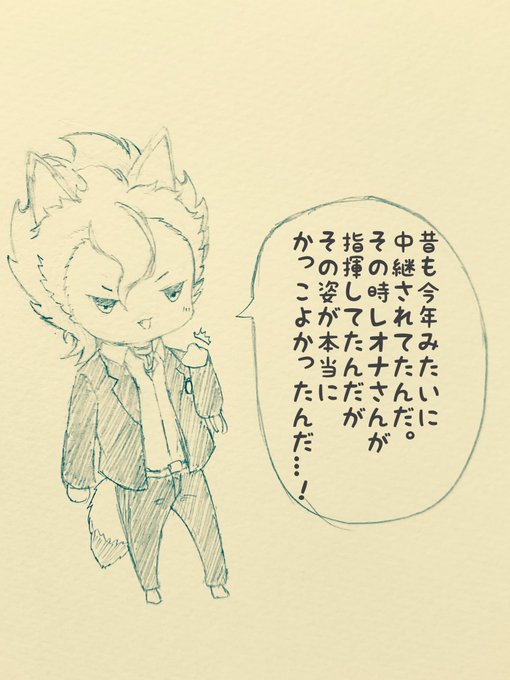 昔も今年みたいに
中継されてたんだ。
その時レオナさんが
指揮してたんだが
その姿が本当に
かっこよかったんだ…！